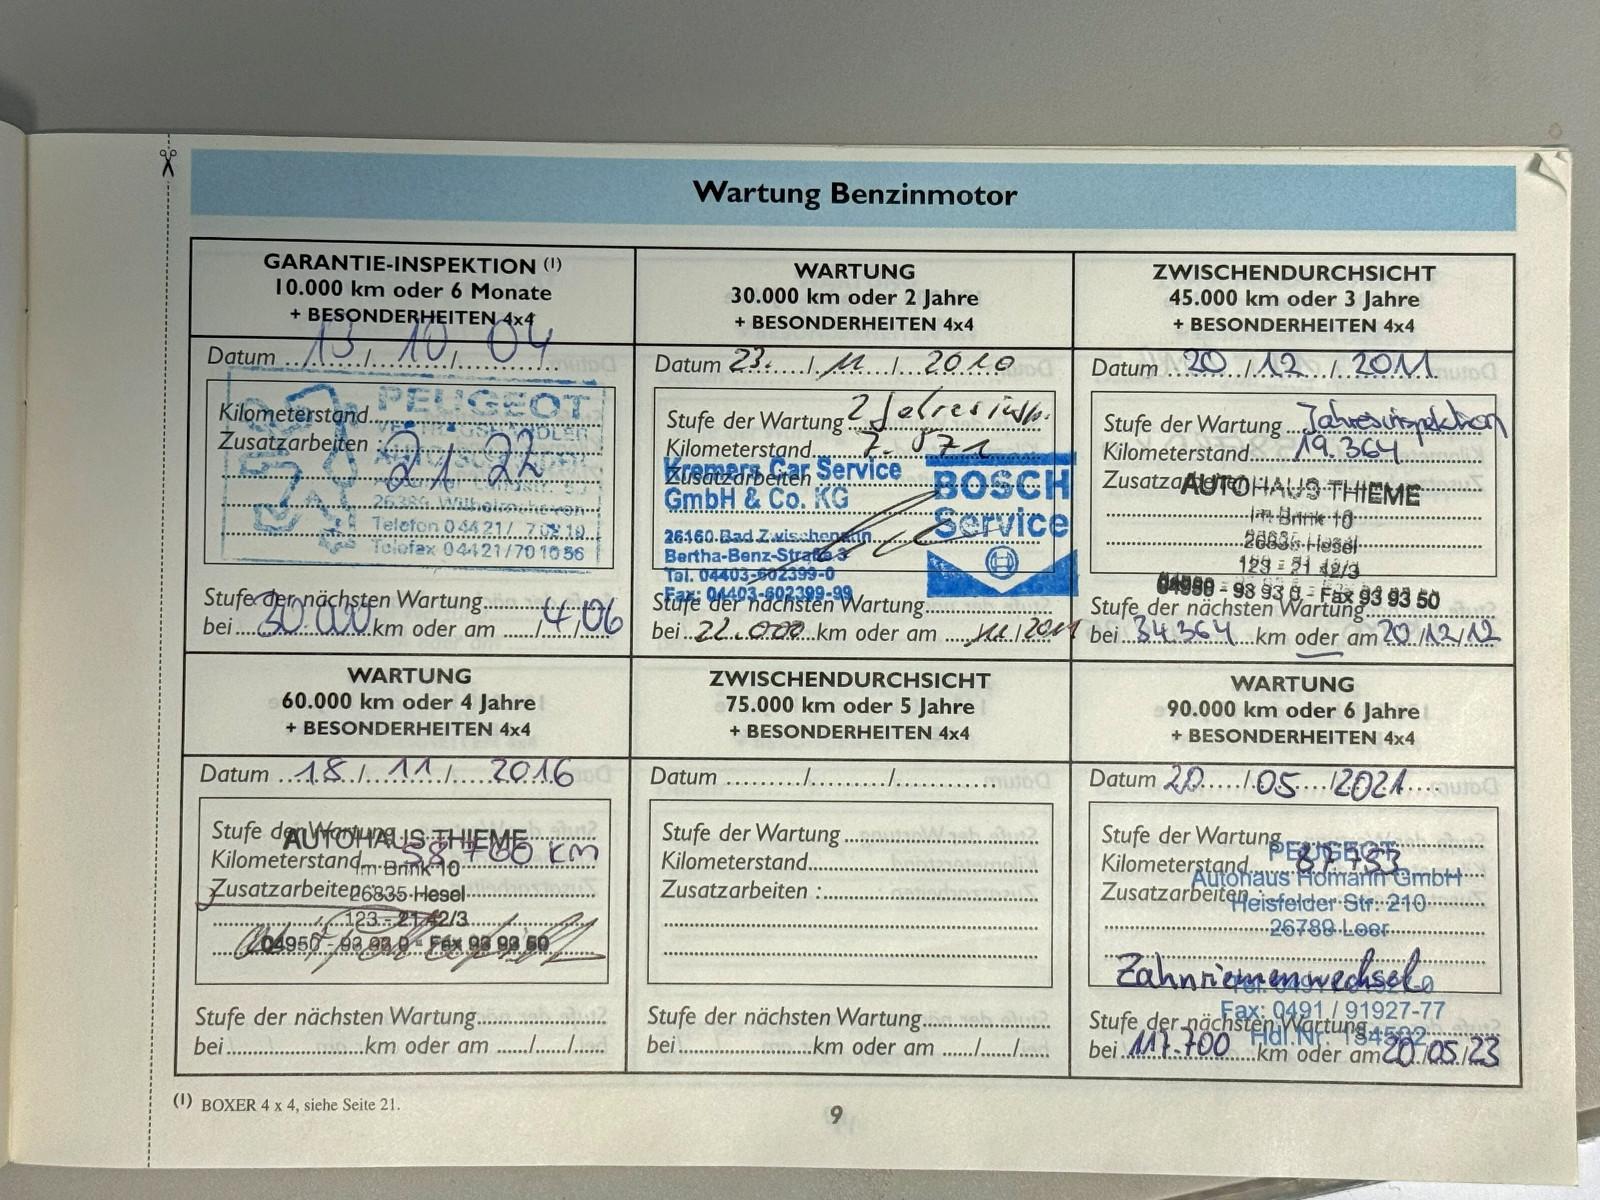 Wartung Benzinmotor
GARANTIE-INSPEKTION (1)
10.000 km oder 6 Monate
+ BESONDERHEITEN 4x4
Datum 13/10/04
PEUGEOT
Kilometerstand
Zusatzarbeiten :
2122
26389 Wilhelmshaven
Telefon 04421/
Telefax 04421/701056
Stufe der nächsten Wartung
bei 30 000 km oder am /4/06
WARTUNG
30.000 km oder 2 Jahre
+ BESONDERHEITEN 4x4
Datum 23./11/2010
Stufe der Wartung 2 Jahresinsp.
Kilometerstand 7.571
Zusatzarbeiten :
Kremers Car Service
GmbH & Co. KG
26160 Bad Zwischenahn
Bertha-Benz-Straße 3
Tel. 04403-602399-0
Fax: 04403-602399-99
BOSCH
Service
Stufe der nächsten Wartung
bei 22.000 km oder am /11/2011
ZWISCHENDURCHSICHT
45.000 km oder 3 Jahre
+ BESONDERHEITEN 4x4
Datum 20/12/2011
Stufe der Wartung Jahresinspektion
Kilometerstand 19.364
Zusatzarbeiten
AUTOHAUS THIEME
Im Brink 10
26835 Hesel
123 - 21 42/3
04950 - 93 93 0 - Fax 93 93 50
Stufe der nächsten Wartung
bei 34.364 km oder am 20/12/12
WARTUNG
60.000 km oder 4 Jahre
+ BESONDERHEITEN 4x4
Datum 18/11/2016
Stufe der Wartung
AUTOHAUS THIEME
Kilometerstand 58700 km
Im Brink 10
Zusatzarbeiten :
26835 Hesel
123 - 21 42/3
04950 - 93 93 0 - Fax 93 93 50
Stufe der nächsten Wartung
bei km oder am / /
ZWISCHENDURCHSICHT
75.000 km oder 5 Jahre
+ BESONDERHEITEN 4x4
Datum / /
Stufe der Wartung
Kilometerstand
Zusatzarbeiten :
Stufe der nächsten Wartung
bei km oder am / /
WARTUNG
90.000 km oder 6 Jahre
+ BESONDERHEITEN 4x4
Datum 20/05/2021
Stufe der Wartung
PEUGEOT
Kilometerstand 87.733
Autohaus Homann GmbH
Zusatzarbeiten
Heisfelder Str. 210
26789 Leer
Zahnriemenwechsel
Fax: 0491 / 91927-77
Stufe der nächsten Wartung
Hdl.Nr.
bei 117.700 km oder am 20/05/23
(1) BOXER 4 x 4, siehe Seite 21.
9